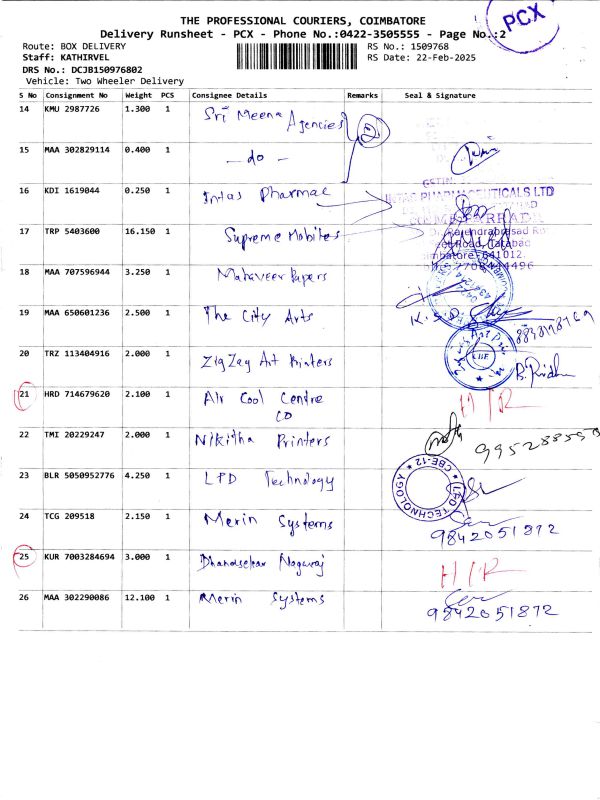 THE PROFESSIONAL COURIERS, COIMBATORE
Delivery Runsheet - PCX - Phone No.:0422-3505555 - Page No.:2
PCX
Route: BOX DELIVERY
RS No.: 1509768
Staff: KATHIRVEL
RS Date: 22-Feb-2025
DRS No.: DCJB150976802
Vehicle: Two Wheeler Delivery
S No Consignment No Weight PCS Consignee Details Remarks Seal & Signature
14 KMU 2987726 1.300 1 Sri Meena Agencies 2
15 MAA 302829114 0.400 1 - do -
16 KDI 1619044 0.250 1 Intas Pharmac
INTAS PHARMACEUTICALS LTD
17 TRP 5403600 16.150 1 Supreme Mobites
Rajendraprasad Rd
Road, Tatabad
641012
18 MAA 707596944 3.250 1 Mahaveer Papers
19 MAA 650601236 2.500 1 The City Arts
20 TRZ 113404916 2.000 1 ZigZag Art Printers CBE
21 HRD 714679620 2.100 1 Air Cool Centre H/R
CO
22 TMI 20229247 2.000 1 Nikitha Printers
23 BLR 5050952776 4.250 1 LFD Technology LFD TECHNOLOGY CBE-12
24 TCG 209518 2.150 1 Merin Systems 9842051872
25 KUR 7003284694 3.000 1 Dhanasekar Nagaraj H/R
26 MAA 302290086 12.100 1 Merin Systems 9842051872